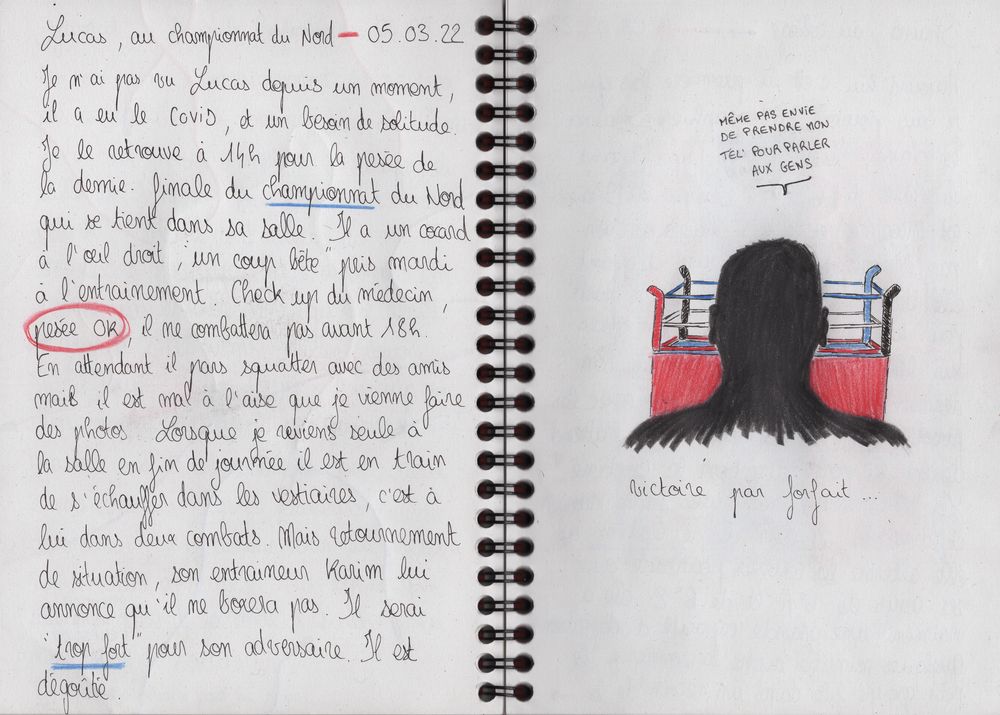 Lucas, au championnat du Nord — 05.03.22
Je n'ai pas vu Lucas depuis un moment,
il a eu le Covid, et un besoin de solitude.
Je le retrouve à 14h pour la pesée de
la demie-finale du championnat du Nord
qui se tient dans sa salle. Il a un cocard
à l'oeil droit, "un coup bête" pris mardi
à l'entrainement. Check up du médecin,
pesée OK, il ne combattera pas avant 18h.
En attendant il pars squatter avec des amis
mais il est mal à l'aise que je vienne faire
des photos. Lorsque je reviens seule à
la salle en fin de journée il est en train
de s'échauffer dans les vestiaires, c'est à
lui dans deux combats. Mais retournement
de situation, son entraineur Karim lui
annonce qu'il ne boxera pas. Il serai
"trop fort" pour son adversaire. Il est
dégoûté.
MÊME PAS ENVIE
DE PRENDRE MON
TEL' POUR PARLER
AUX GENS
victoire par forfait...